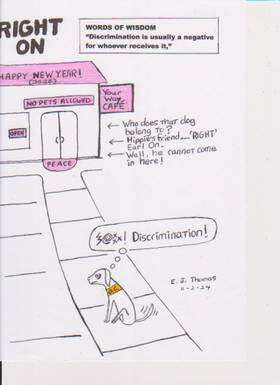 RIGHT
ON
WORDS OF WISDOM
"Discrimination is usually a negative
for whoever receives it,"
HAPPY NEW YEAR!
NO PETS ALLOWED
Your
Way
CAFÉ
OPEN
PEACE
Who does that dog
belong to?
Hippie's friend...."RIGHT"
Earl On.
Well, he cannot come
in here!
! Discrimination!
E. J. Thomas